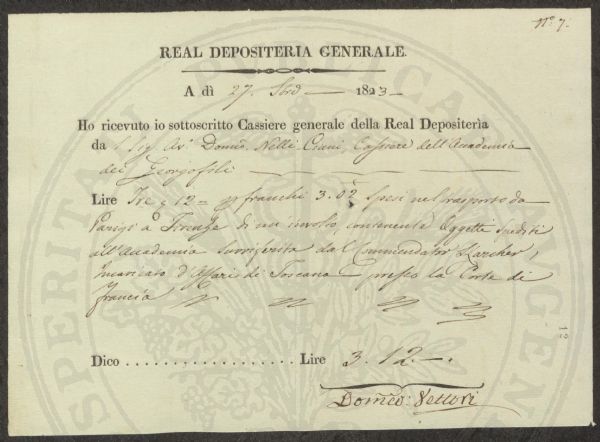 Nº 7.
REAL DEPOSITERIA GENERALE.
A dì 27. 1823
Ho ricevuto io sottoscritto Cassiere generale della Real Depositerìa
da Sig. Avº Domcò. Nelli Ciani, Cassiere dell'Accademia
dei Georgofili
Lire Tre e 12 = p franchi 3. 02 spesi nel trasporto da
Parigi a Firenze di un involto, contenente Oggetti spediti
all'Accademia surriferita dal Commendator Karcher,
Incaricato d'Affari di Toscana presso la Corte di
Francia
Dico . . . . . . . . . . . . . . . . . . Lire 3. 12. —.
Domco: Vettori
SPERITATI PUBLICAE